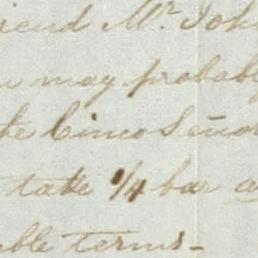 riend Mr John
may probabl
the Cinco Señor
take 1/4 bar a
ble terms-